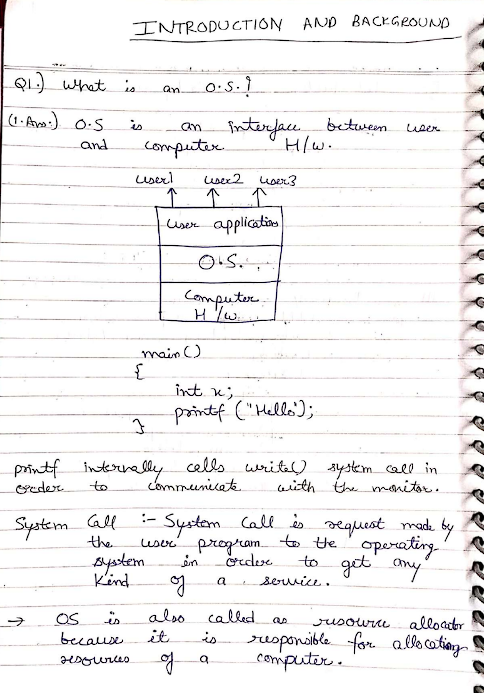 INTRODUCTION AND BACKGROUND
Q1.) What is an O.S.?
(1.Ans:) O.S is an interface between user
and computer H/w.
user1 user2 user3
user application
O.S.
Computer
H/w
main()
{
int x;
printf ("Hello");
}
printf internally calls write() system call in
order to communicate with the monitor.
System Call :- System Call is request made by
the user program to the operating
system in order to get any
kind of a service.
→ OS is also called as resource allocator
because it is responsible for allocating
resources of a computer.